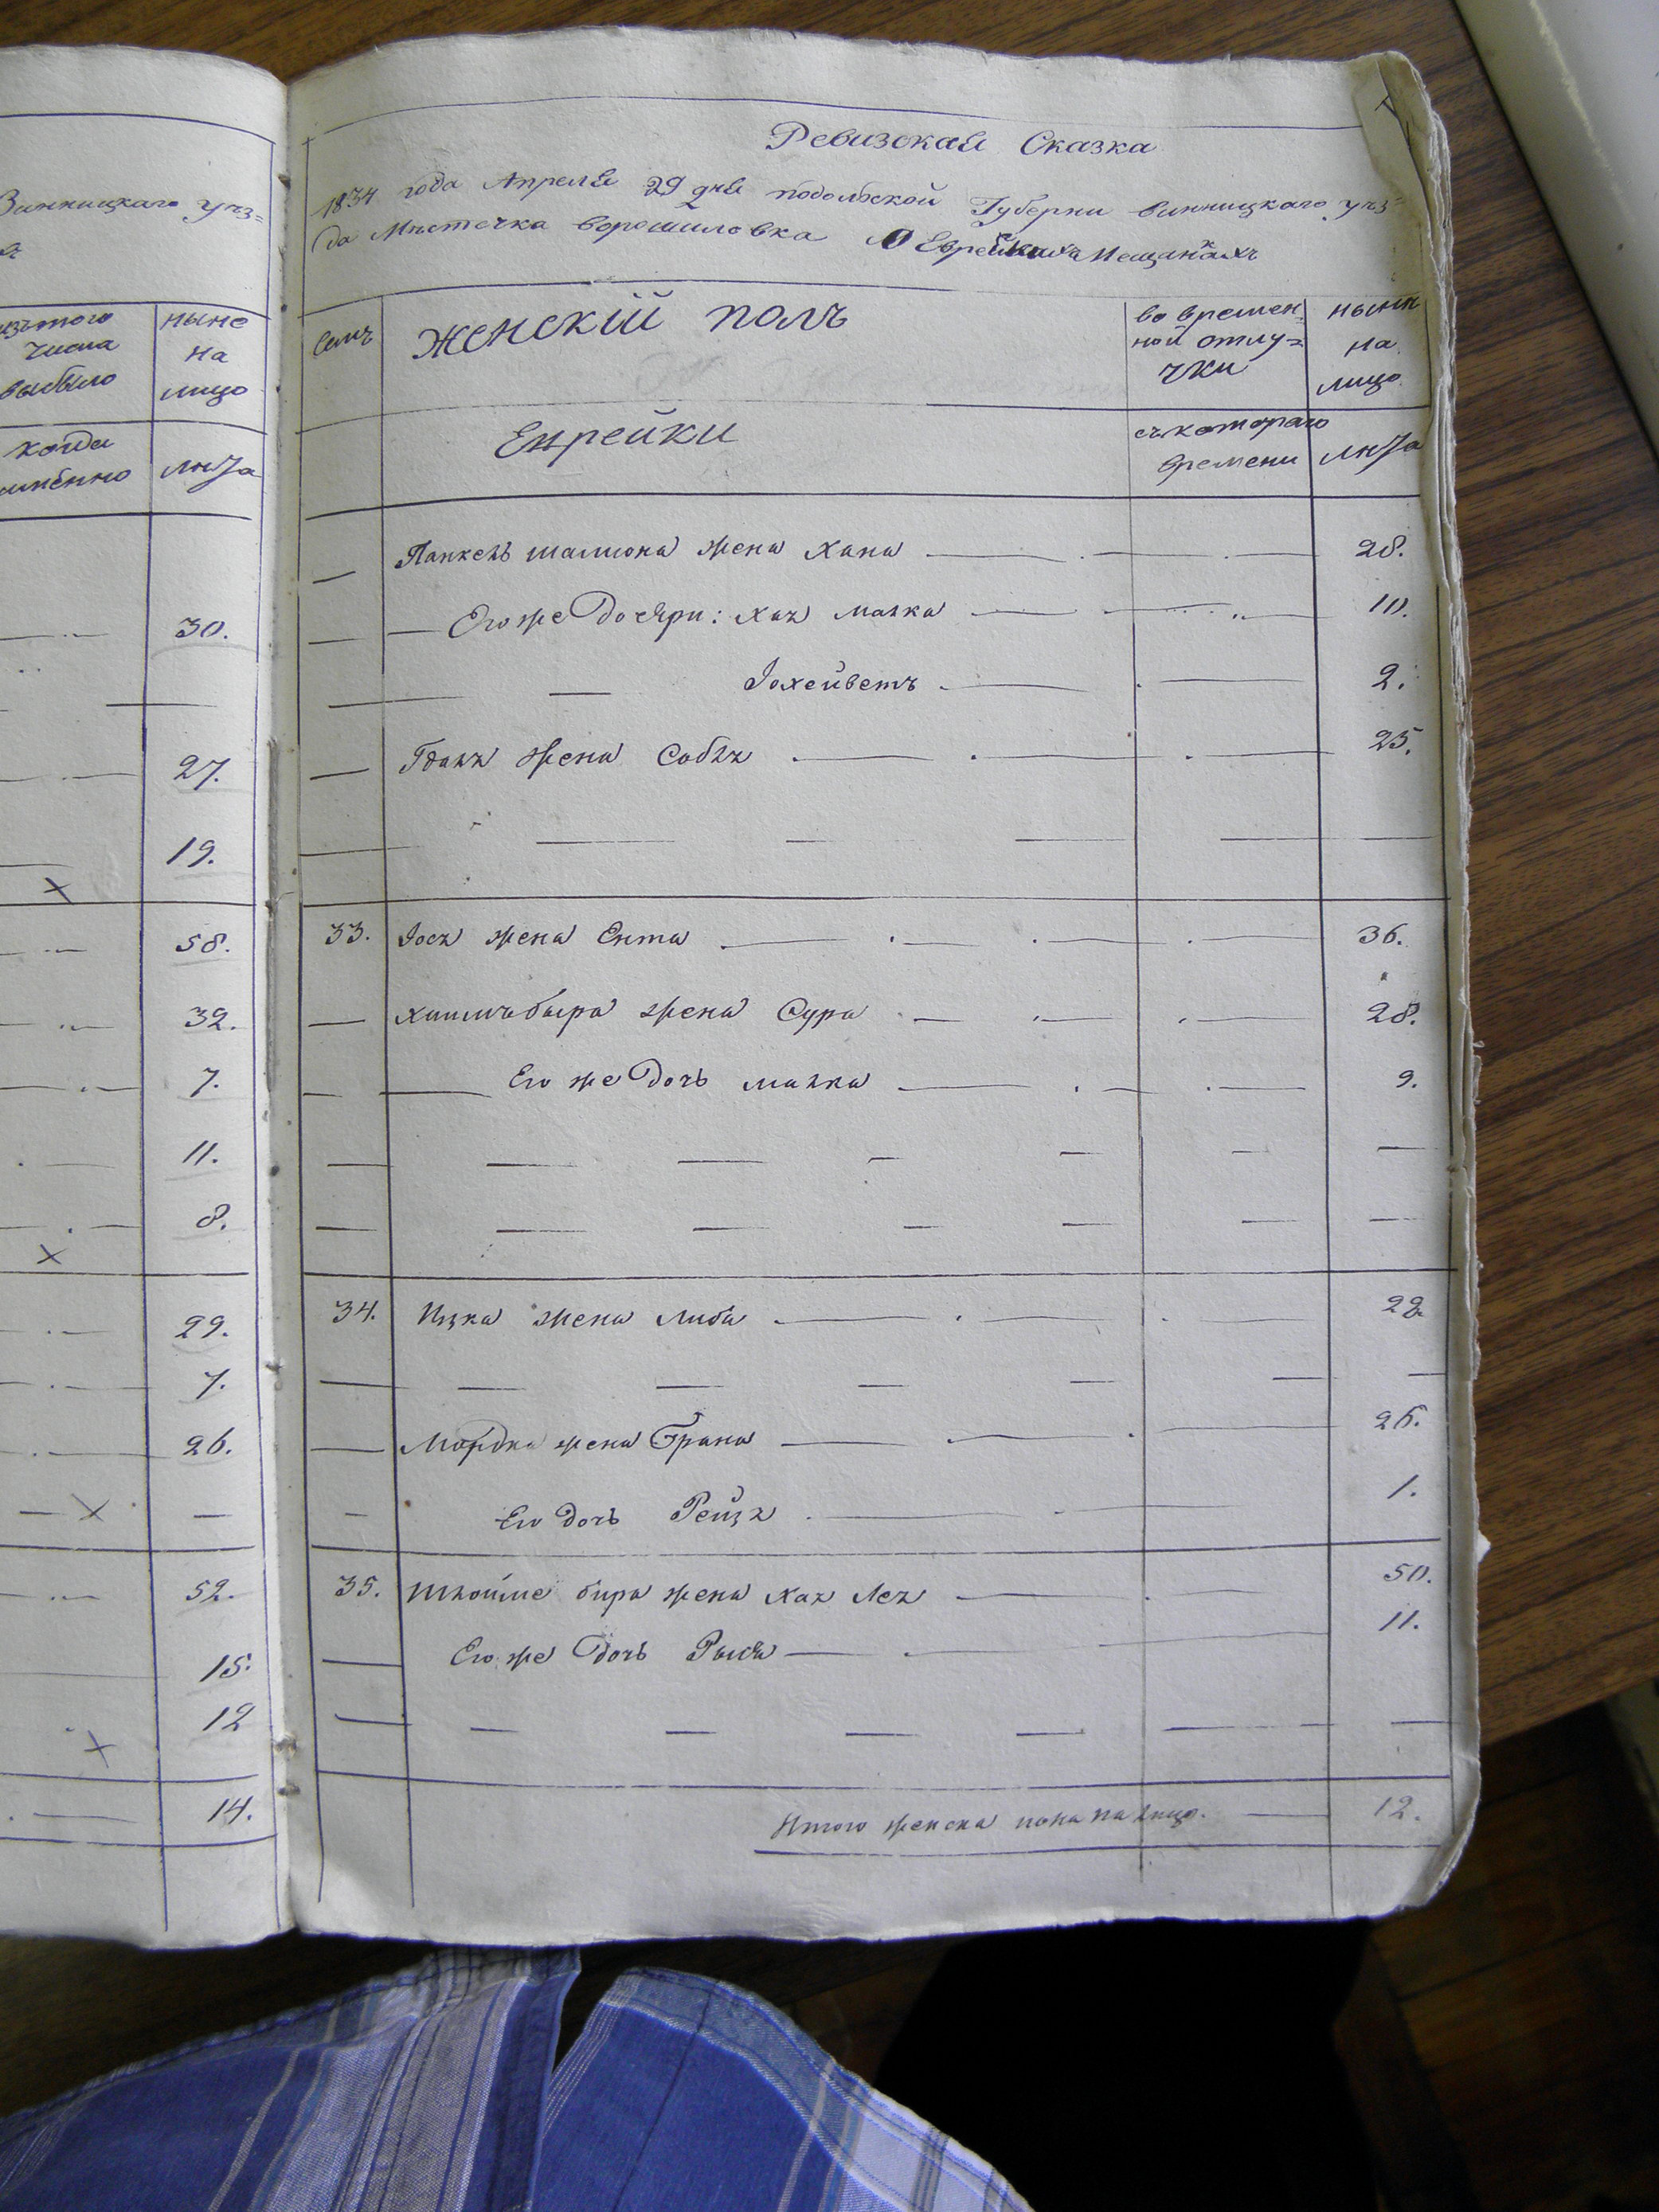 Винницкаго уез=
изътого
числа
выбыло
ныне
на
лицо
когда
имѣнно
лѣта
30.
27.
19.
58.
32.
7.
11.
8.
29.
7.
26.
52.
15.
12
14.
Ревизская Сказка
1834 года Апреля 29 дня подольской Губерни винницкаго уез=
да Мѣстечка ворошиловка О Еврейскихъ Мещанкахъ
Семъ
женскій полъ
во времен=
ной отлу=
чки
нынѣ
на
лицо
Еврейки
съкотораго
времени
лѣта
жена Хана 28.
Его же дочери: Хая Малка 10.
Іохейветъ 2.
жена Собля 25.
33. Іося жена Ента 36.
жена Сура 28.
Его же дочь малка 9.
34. Ицка жена Либа 22
Мордка жена Грана 25.
Его дочь Рейзя 1.
35. Шлойме бира жена Хая Лея 50.
Его же дочь Рыся 11.
Итого женска пола на лицо. 12.